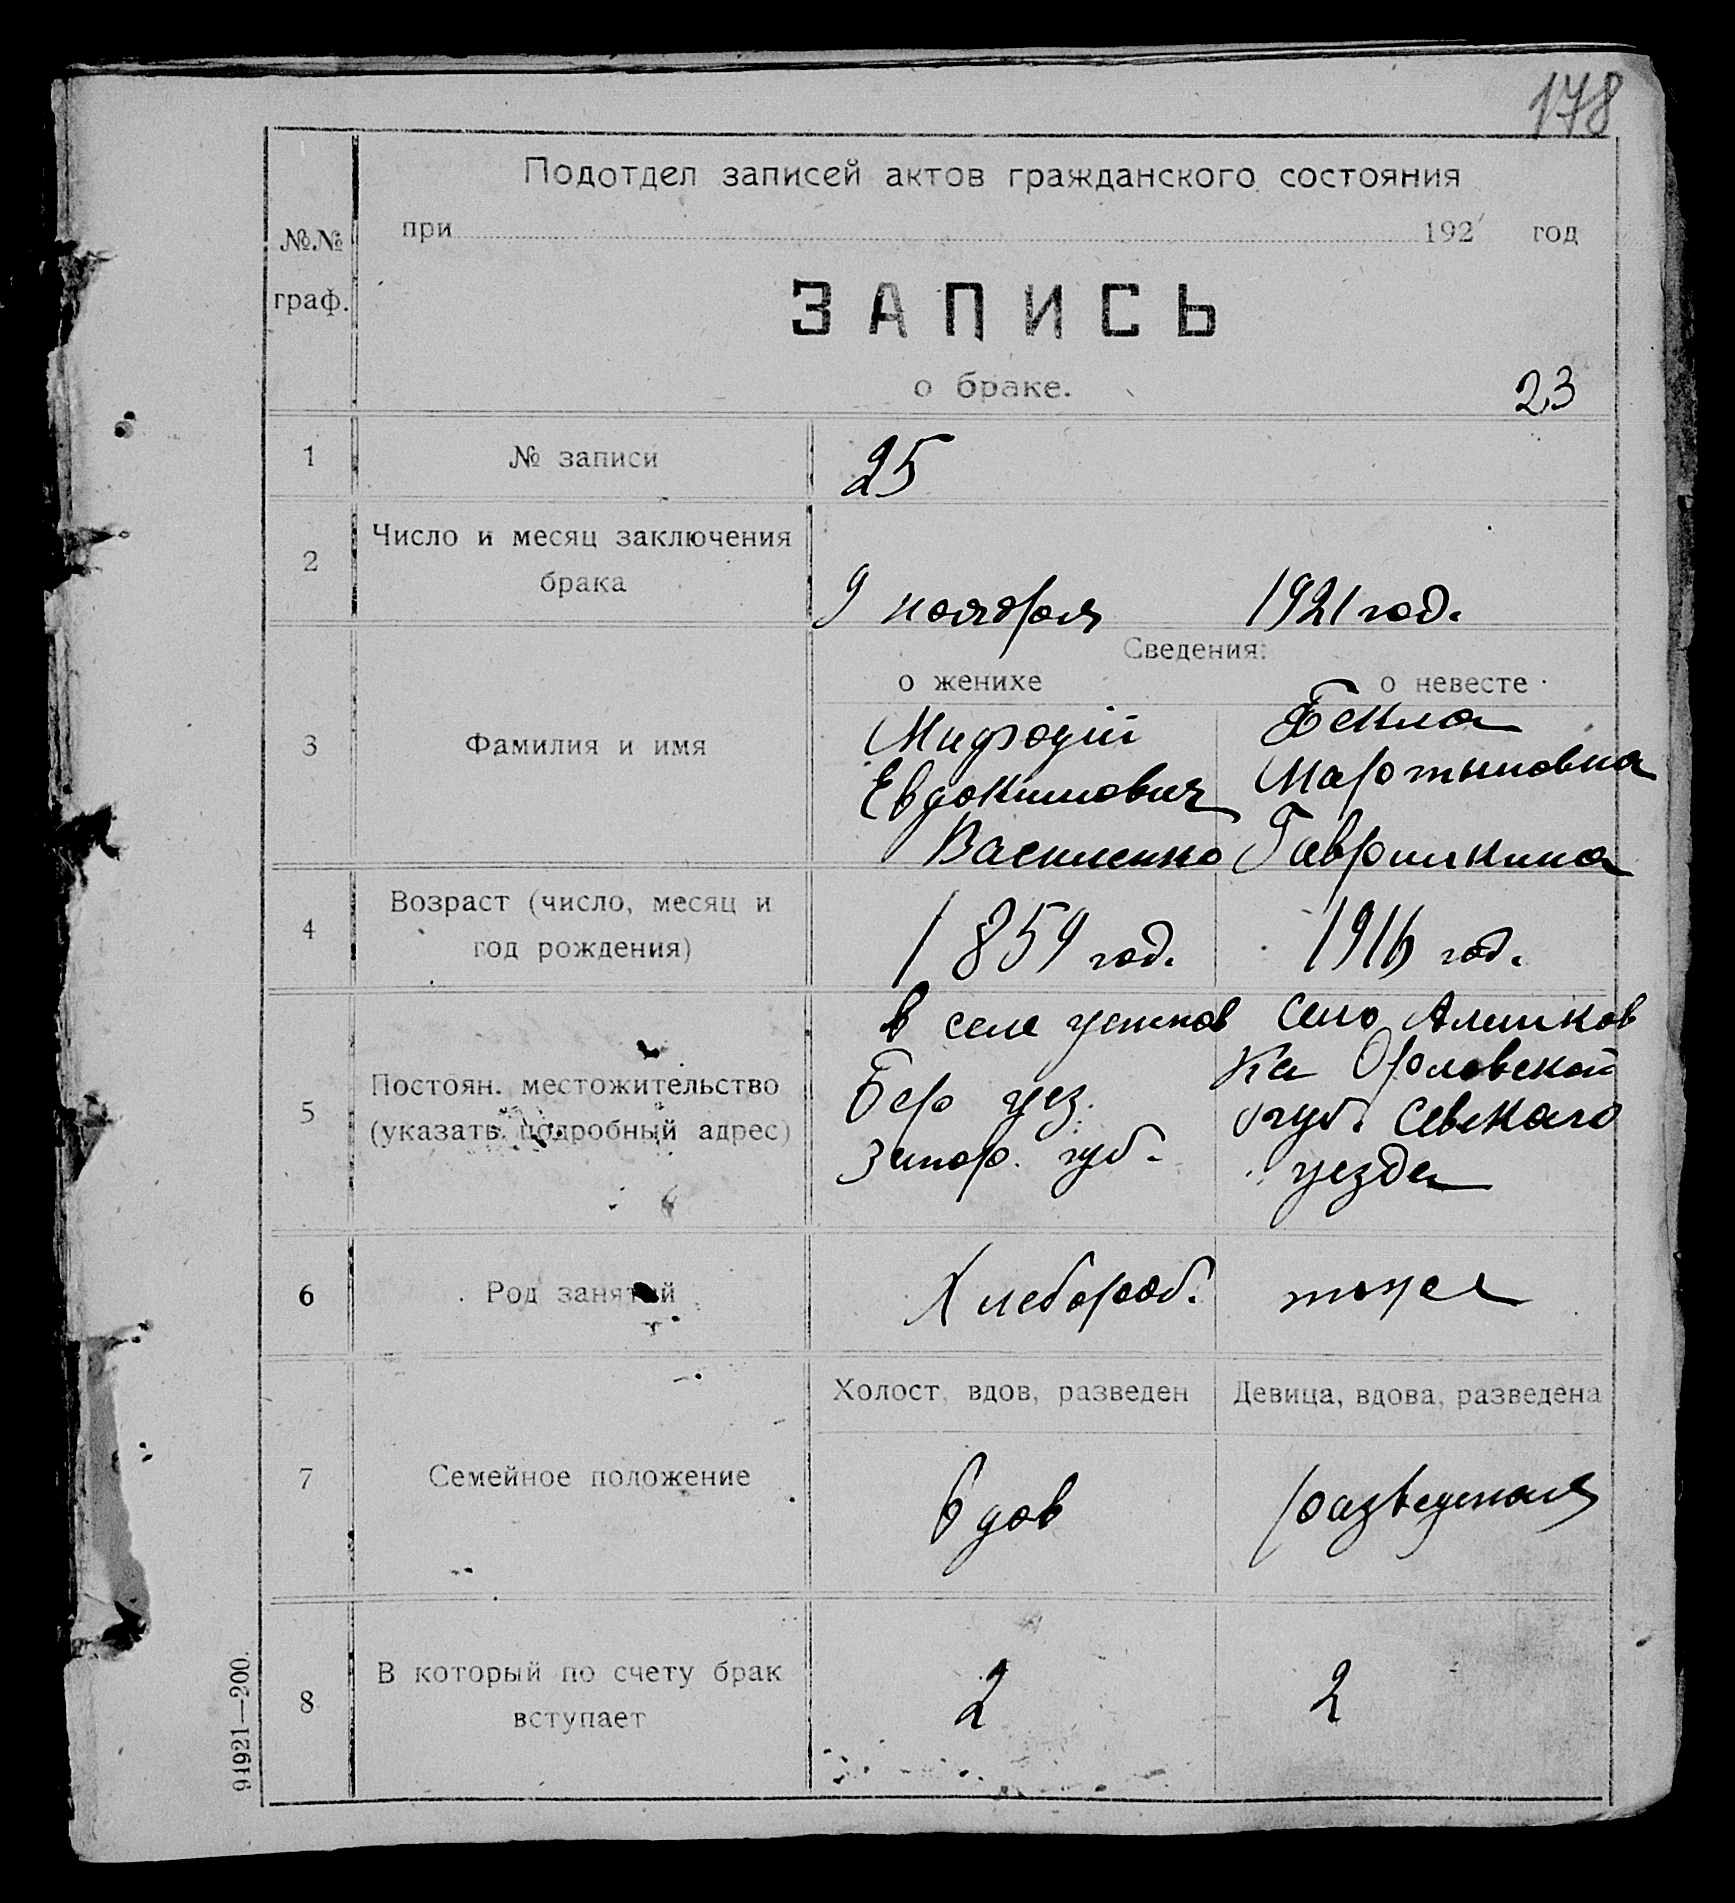 178
Подотдел записей актов гражданского состояния
№№ граф.
при 192 год
ЗАПИСЬ
о браке.
23
1 № записи 25
2 Число и месяц заключения брака
9 ноября 1921 год.
Сведения:
о женихе о невесте
3 Фамилия и имя
Мифодий Фекла
Евдокимович Мартыновна
Василенко Гавришкина
4 Возраст (число, месяц и год рождения)
1859 год.
год.
5 Постоян. местожительство
(указать подробный адрес)
в селе село Алешков
Бер уез. ка Орловской
Запор. губ. губ. Севского
уезда
6 Род занятий Хлебороб. тоже
Холост, вдов, разведен Девица, вдова, разведена
7 Семейное положение вдов разведеная
8 В который по счету брак вступает 2 2
91921—200.